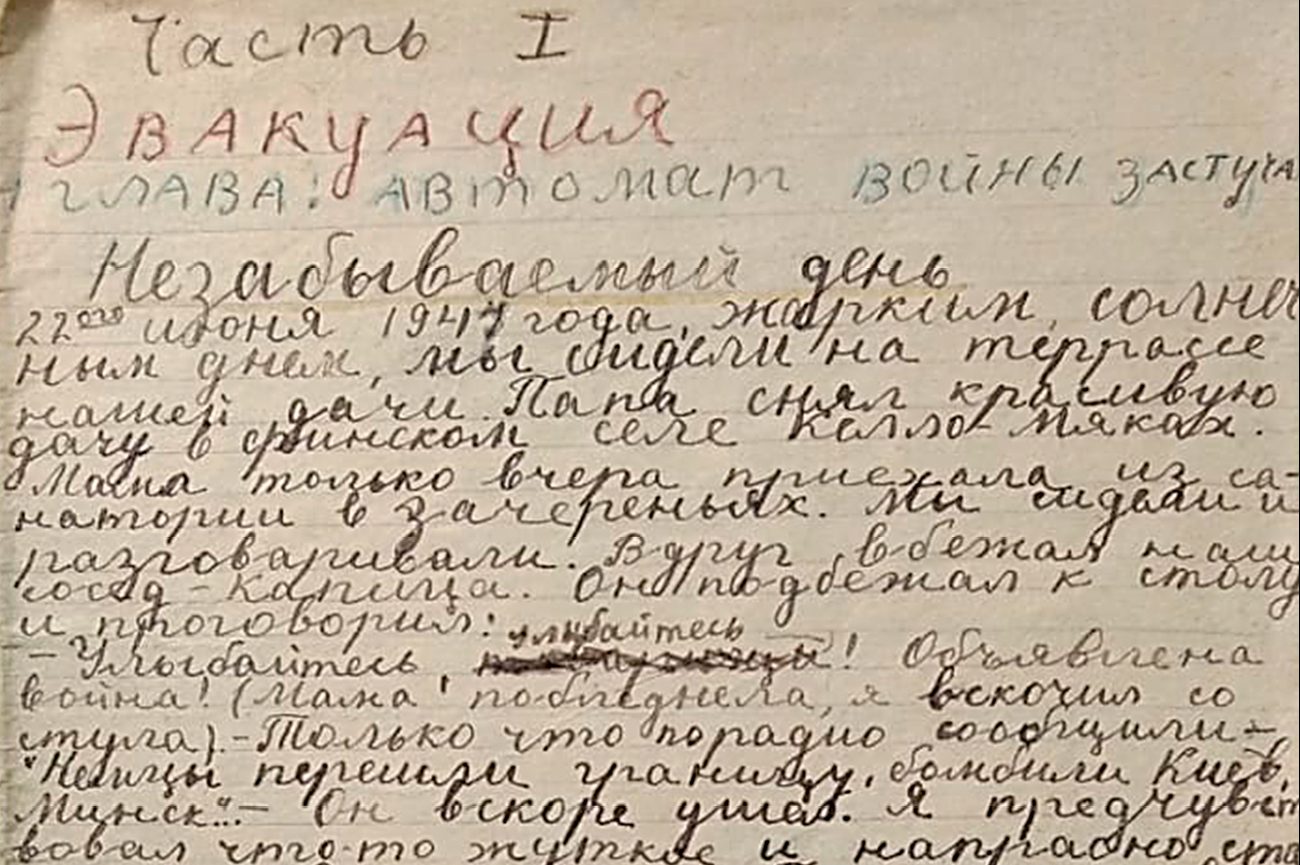 Часть I
Эвакуация
глава: автомат войны застуча
Незабываемый день
22ого июня 1941 года, жарким, солнеч
ным днем, мы сидели на террассе
нашей дачи. Папа снял красивую
дачу в финском селе Келло-Мяках.
Мама только вчера приехала из са-
натории в Зачереньях. Мы сидели и
разговаривали. Вдруг вбежал наш
сосед - Капица. Он подбежал к столу
и проговорил:
улыбайтесь
- Улыбайтесь, ! Объявлена
война! (Мама побледнела, я вскочил со
стула). - Только что по радио сообщили -
"Немцы перешли границу, бомбили Киев,
Минск". - Он вскоре ушел. Я предчувст
вовал что-то жуткое и напрасно ста